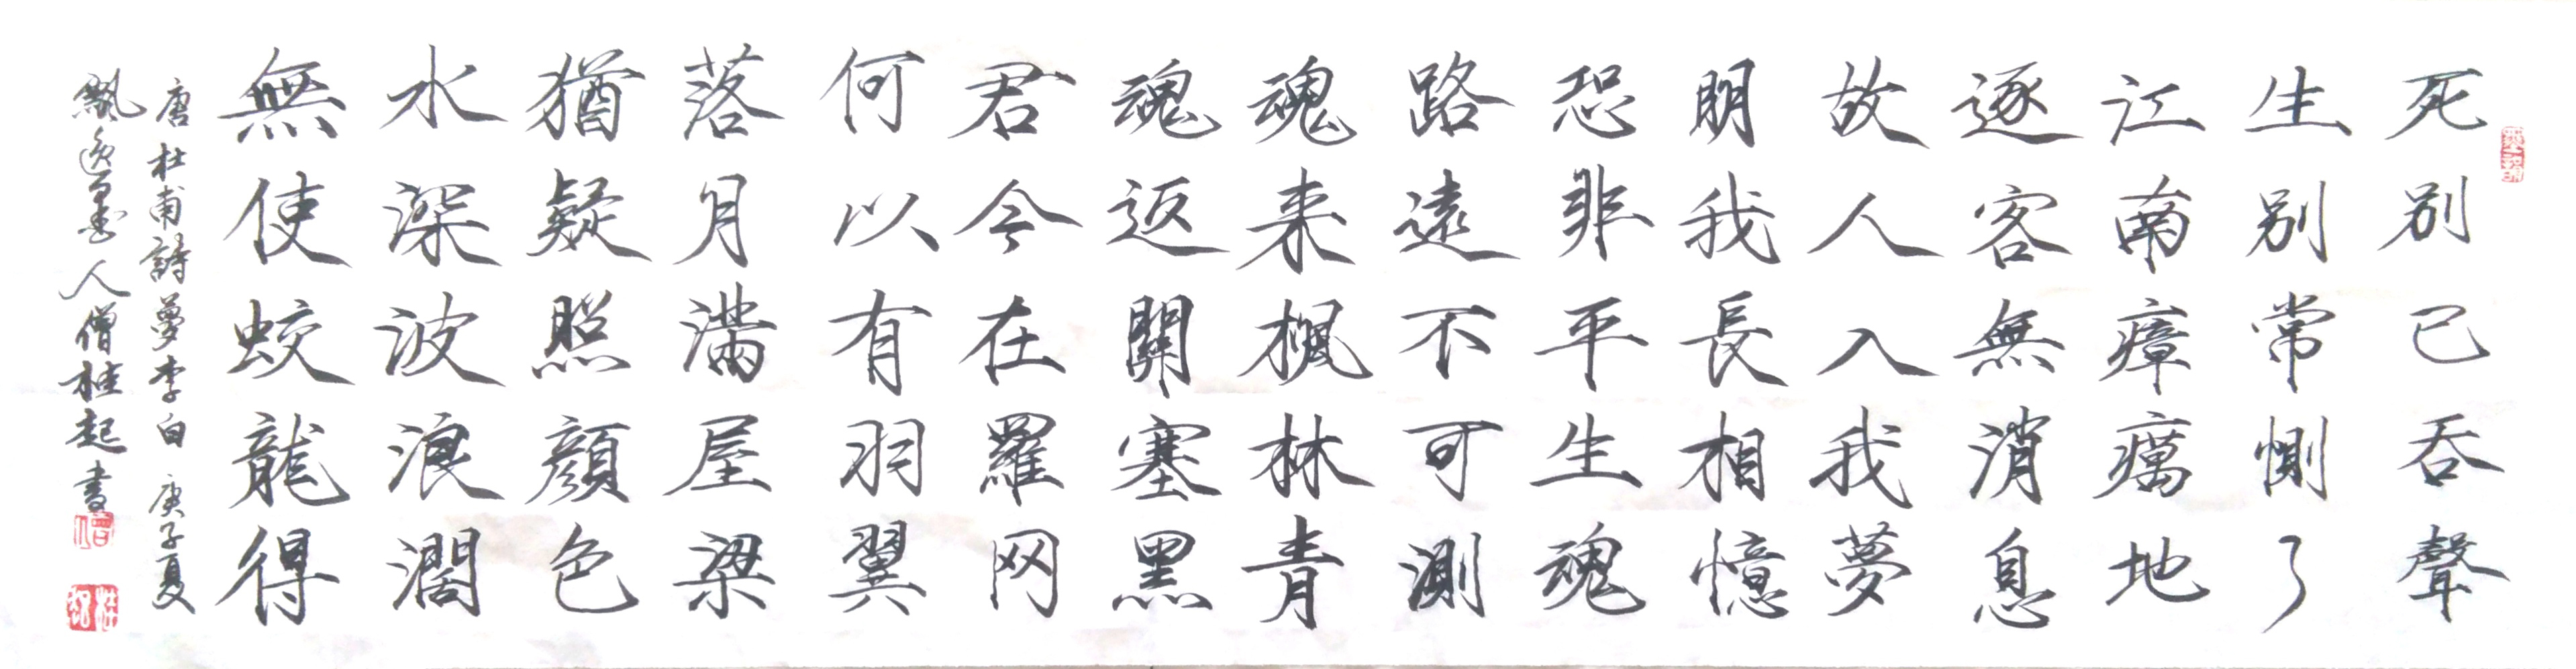 死别已吞聲
生别常惻了
江南瘴癘地
逐客無消息
故人入我夢
明我長相憶
恐非平生魂
路遠不可測
魂来楓林青
魂返關塞黑
君今在羅网
何以有羽翼
落月滿屋梁
猶疑照顔色
水深波浪濶
無使蛟龍得
唐杜甫詩夢李白 庚子夏
飄逸墨人僧桂起書